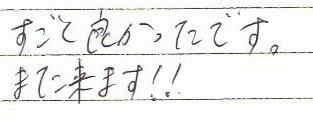 すごく良かったです。
また来ます!!